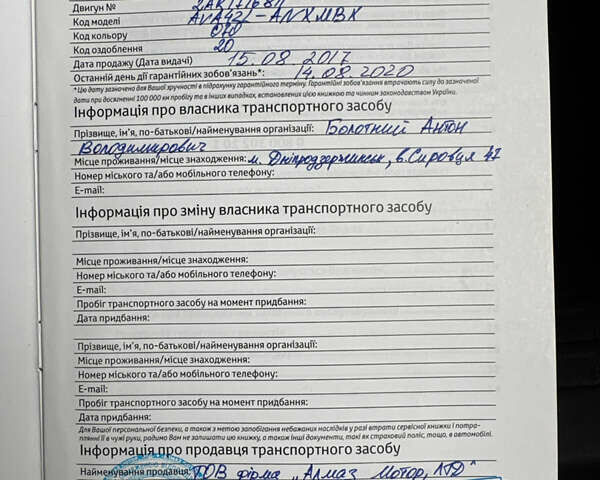 Двигун № 2AR1716811
Код моделі AVA42L-ANXMBX
Код кольору 070
Код оздоблення 20
Дата продажу (Дата видачі) 15.08.2017
Останній день дії гарантійних зобов'язань*: 14.08.2020
*Цю дату зазначено для Вашої зручності в підрахунку гарантійного терміну. Гарантійні зобов'язання втрачають силу до зазначеної
дати при досягненні 100 000 км пробігу та в інших випадках, встановлених цією книжкою та чинним законодавством України.
Інформація про власника транспортного засобу
Прізвище, ім'я, по-батькові/найменування організації: Болотний Антон
Володимирович
Місце проживання/місце знаходження: м. Дніпродзержинськ, в. Сировця 47
Номер міського та/або мобільного телефону:
E-mail:
Інформація про зміну власника транспортного засобу
Прізвище, ім'я, по-батькові/найменування організації:
Місце проживання/місце знаходження:
Номер міського та/або мобільного телефону:
E-mail:
Пробіг транспортного засобу на момент придбання:
Дата придбання:
Прізвище, ім'я, по-батькові/найменування організації:
Місце проживання/місце знаходження:
Номер міського та/або мобільного телефону:
E-mail:
Пробіг транспортного засобу на момент придбання:
Дата придбання:
Для Вашої персональної безпеки, а також з метою запобігання небажаних наслідків у разі втрати сервісної книжки і потра-
пляння її в чужі руки, радимо Вам не залишати цю книжку, а також інші документи, такі як страховий поліс, тощо, в автомобілі.
Інформація про продавця транспортного засобу
Найменування продавця: ТОВ фірма "Алмаз Мотор, ЛТД"